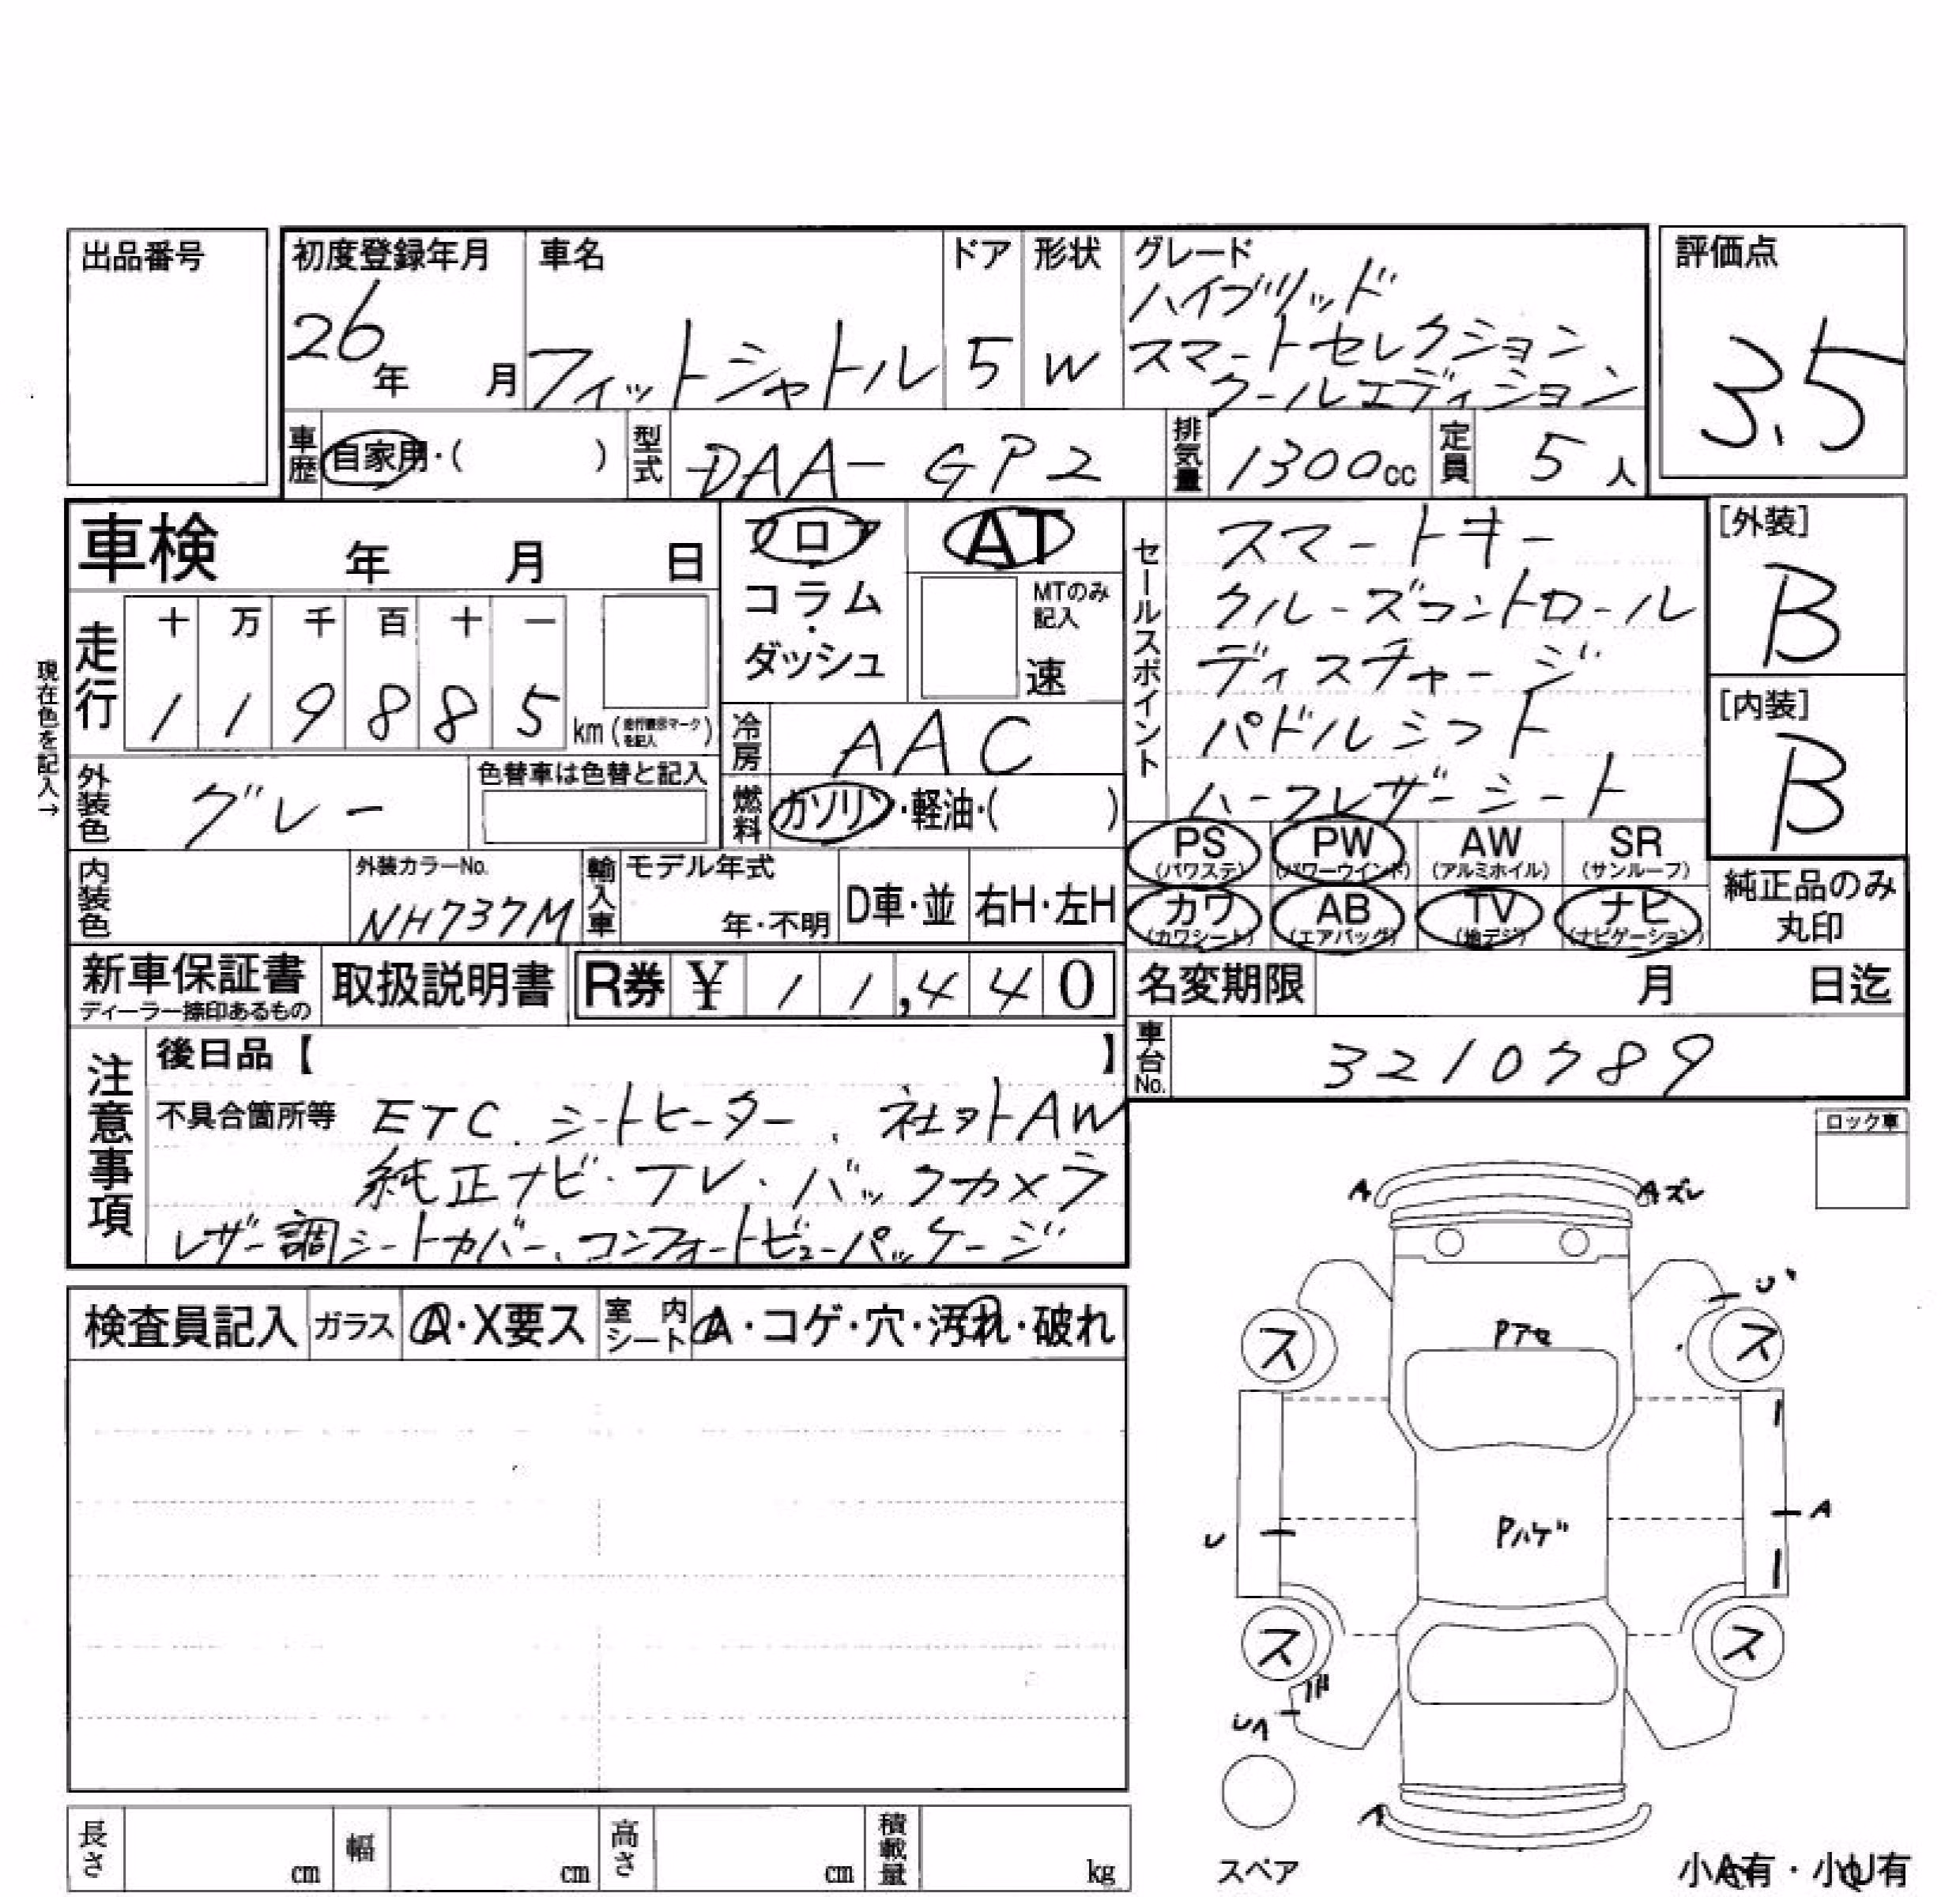 出品番号
初度登録年月
26年 月
車名
フィットシャトル
ドア
5
形状
W
グレード
ハイブリッド
スマートセレクション
クールエディション
評価点
3.5
車歴
自家用・( )
型式
DAA-GP2
排気量
1300cc
定員
5人
車検 年 月 日
フロア
・
コラム
・
ダッシュ
AT
MTのみ
記入
速
セールスポイント
スマートキー
クルーズコントロール
ディスチャージ
パドルシフト
ハーフレザーシート
[外装]
B
[内装]
B
現在色を記入→
走行
十 万 千 百 十 一
1 1 9 8 8 5
km(走行表示マークを記入)
冷房
AAC
外装色
グレー
色替車は色替と記入
燃料
ガソリン・軽油・( )
PS
(パワステ)
PW
(パワーウインド)
AW
(アルミホイル)
SR
(サンルーフ)
カワ
(カワシート)
AB
(エアバッグ)
TV
(地デジ)
ナビ
(ナビゲーション)
純正品のみ
丸印
内装色
外装カラーNo.
NH737M
輸入車
モデル年式
年・不明
D車・並
右H・左H
新車保証書
ディーラー捺印あるもの
取扱説明書
R券 ¥ 11,440
名変期限 月 日迄
車台No.
3210789
注意事項
後日品【 】
不具合箇所等 ETC. シートヒーター、社外AW
純正ナビ・TV・バックカメラ
レザー調シートカバー、コンフォートビューパッケージ
ロック車
検査員記入
ガラス
A・X要ス
室内シート
A・コゲ・穴・汚れ・破れ
A
Aズレ
U
ス
ス
A
U
Pハゲ
ス
ス
A
長さ cm
幅 cm
高さ cm
積載量 kg
スペア
小A有・小U有